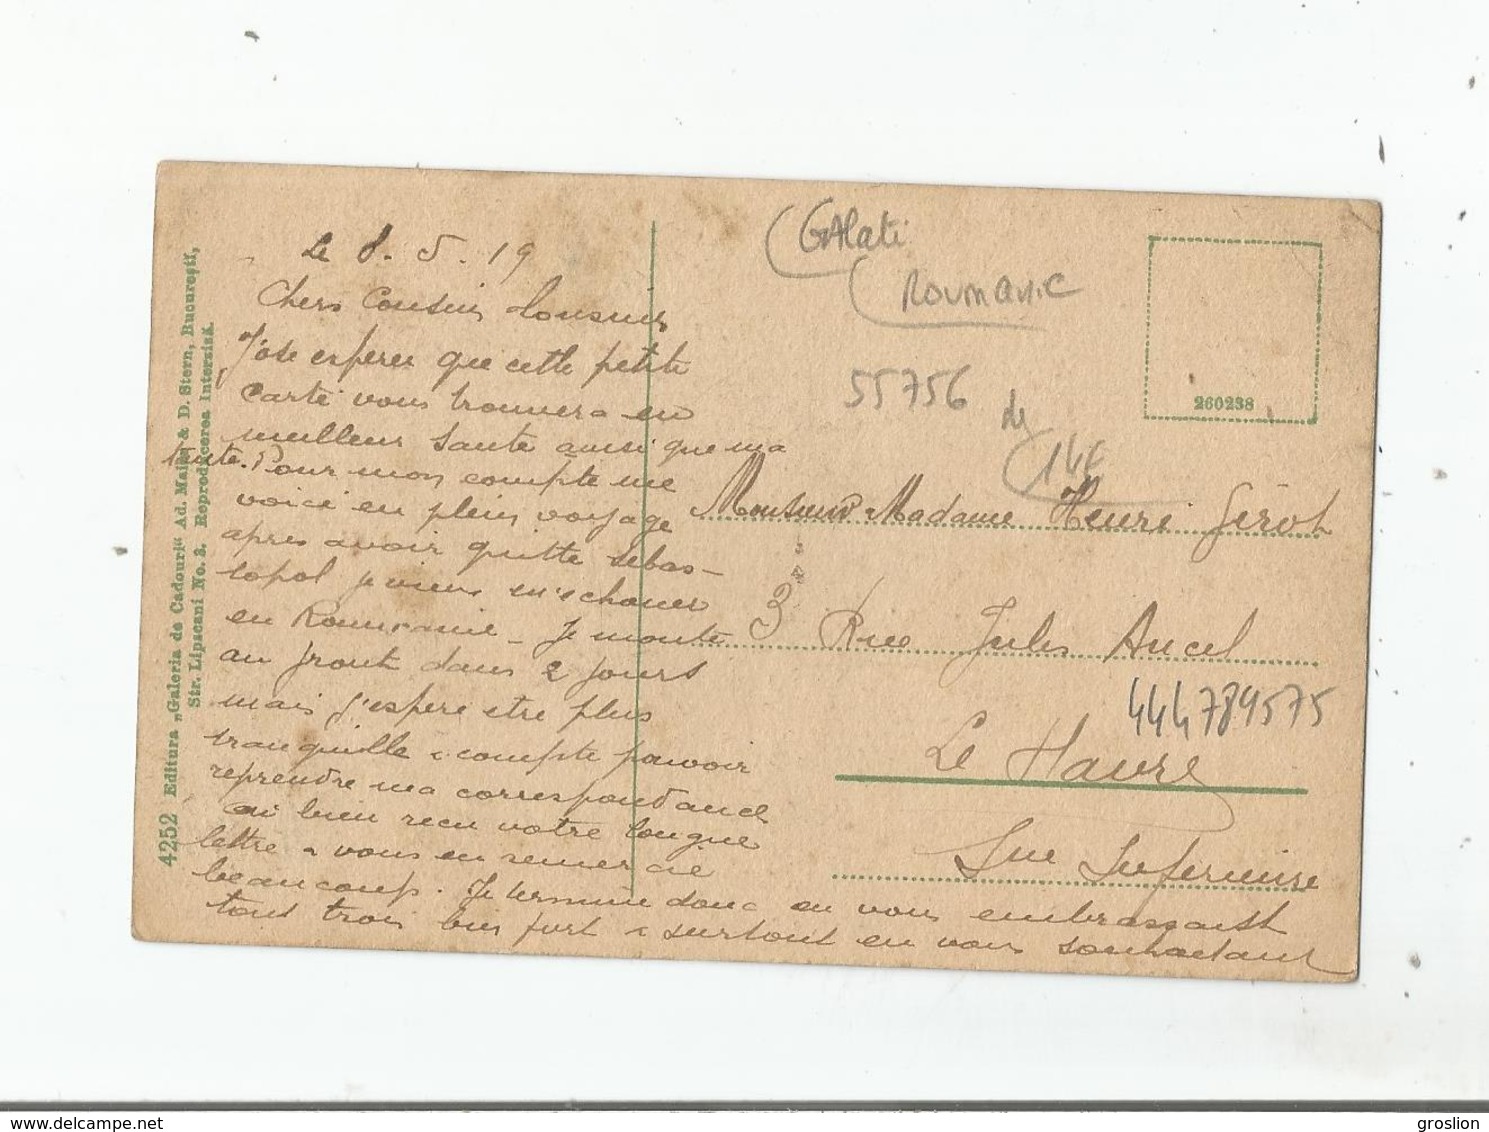 4252 Editura „Galeria de Cadouri“ Ad. Maier & D. Stern, București,
Str. Lipscani No. 3. Reproducerea Interzisă.
Le 8. 5. 19
Chers Cousin Cousine
J'ose esperer que cette petite
carte vous trouvera en
meilleur sante ainsi que ma
tante. Pour mon compte me
voici en plein voyage
apres avoir quitte Sebas-
topol je viens m'echouer
en Roumanie - Je monte
au front dans 2 jours
mais j'espere etre plus
tranquille & compte pouvoir
reprendre ma correspondance
ai bien recu votre longue
lettre & vous en remercie
beaucoup. Je termine donc en vous embrassant
tout trois bien fort & surtout en vous souhaitant
GAlati
ROUMANIE
55756
de
14E
260238
Monsieur Madame Henri Gerot
3 Rue Jules Ancel
444789575
Le Havre
Sne Inferieure
delcampe.net
groslion